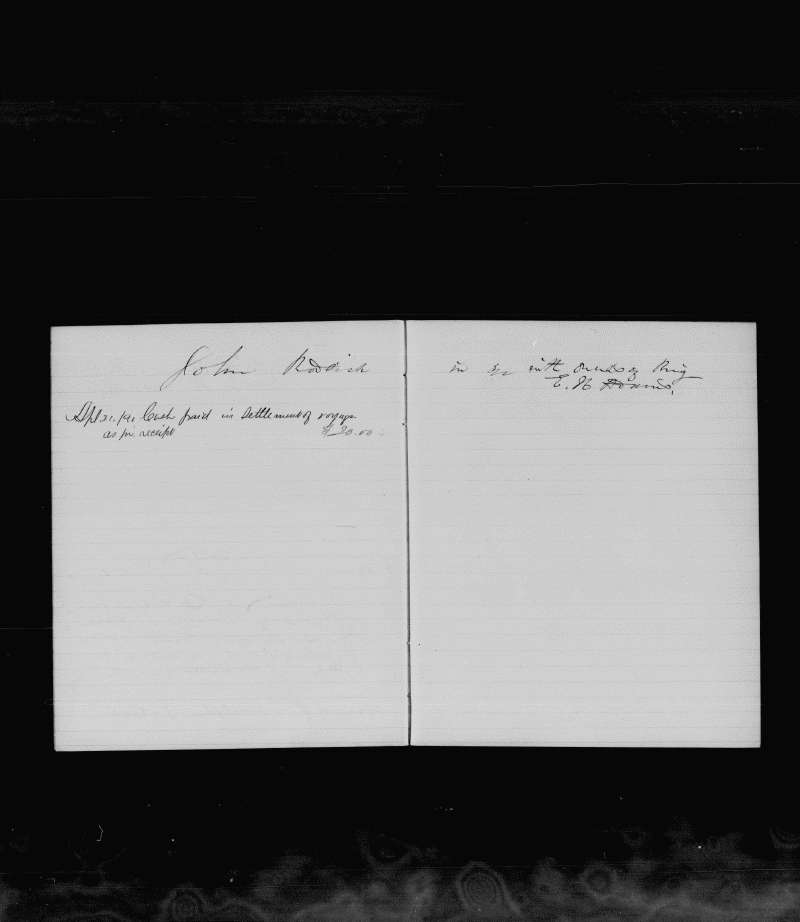 John
in with owners of Brig
E. H.
Spt 21. /91 Cash paid in Settlement of voyage
as pr. receipt $20.00